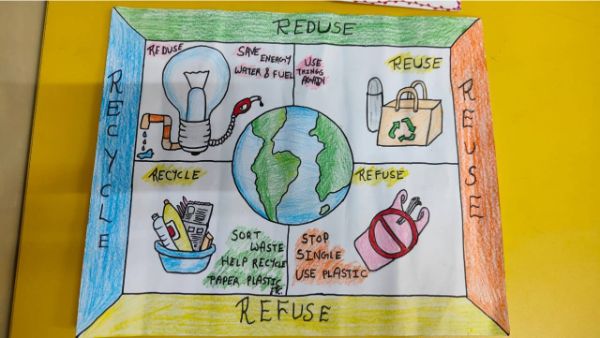 REDUSE
RECYCLE
REUSE
REDUSE
SAVE
ENERGY
WATER & FUEL
USE
THINGS
AGAIN
REUSE
RECYCLE
REFUSE
SORT
WASTE
HELP RECYCLE
PAPER PLASTIC
STOP
SINGLE
USE PLASTIC
REFUSE